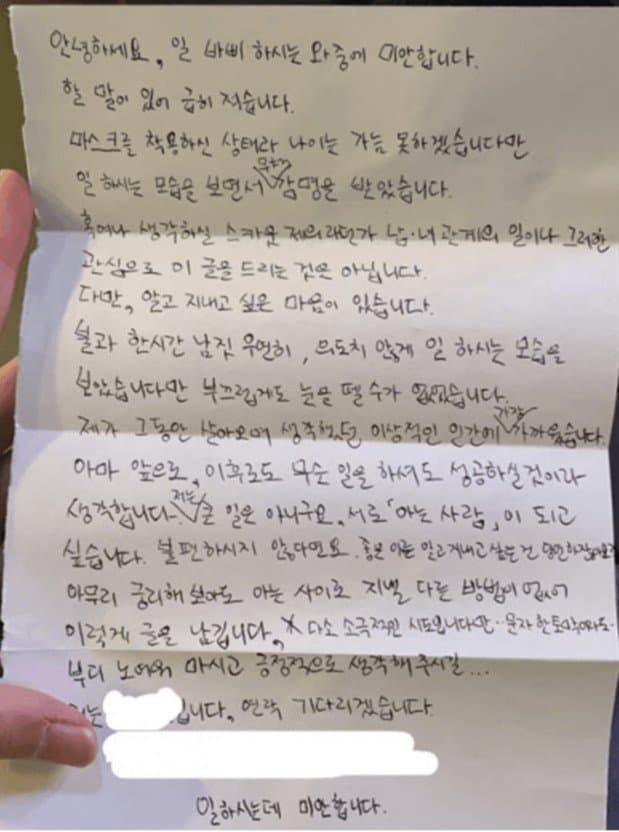 안녕하세요, 일 바삐 하시는 와중에 미안합니다.
할 말이 있어 급히 적습니다.
마스크를 착용하신 상태라 나이는 가늠 못하겠습니다만
일 하시는 모습을 보면서 무척 감명을 받았습니다.
혹여나 생각하실 스카웃 제의라던가 남·녀 관계의 일이나 그러한
관심으로 이 글을 드리는 것은 아닙니다.
다만, 알고 지내고 싶은 마음이 있습니다.
불과 한시간 남짓 우연히, 의도치 않게 일 하시는 모습을
보았습니다만 부끄럽게도 눈을 뗄 수가 없었습니다.
제가 그동안 살아오며 생각했던 이상적인 인간에 가장 가까웠습니다.
아마 앞으로, 이후로도 무슨 일을 하셔도 성공하실것이라
생각합니다. 저는 큰 일은 아니구요, 서로「아는 사람」이 되고
싶습니다. 불편하시지 않다면요. 좋은 이는 알고지내고 싶은건 당연하잖아요
아무리 궁리해 보아도 아는 사이로 지낼 다른 방법이 없어
이렇게 글을 남깁니다, 다소 소극적인 시도입니다만..문자 한
부디 노여워 마시고 긍정적으로 생각해 주시길...
저는 입니다, 연락 기다리겠습니다.
일하시는데 미안합니다.